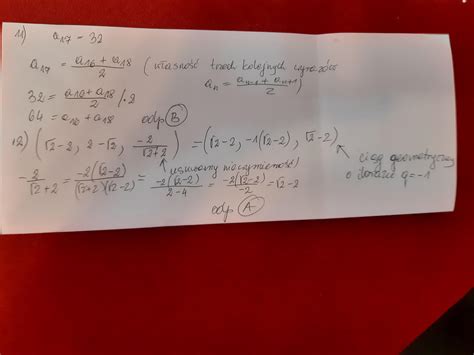 11) a₁₇ = 32
a₁₇ = (a₁₆ + a₁₈)/2 (własność trzech kolejnych wyrazów
aₙ = (aₙ₋₁ + aₙ₊₁)/2
32 = (a₁₆ + a₁₈)/2 /·2
64 = a₁₆ + a₁₈
odp (B)
12) (√2-2, 2-√2, -2/(√2+2)) = (√2-2, -1(√2-2), √2-2)
ciąg geometryczny
o ilorazie q=-1
usuwamy niewymierność!
-2/(√2+2) = -2(√2-2)/((√2+2)(√2-2)) = -2(√2-2)/(2-4) = -2(√2-2)/-2 = √2-2
odp (A)